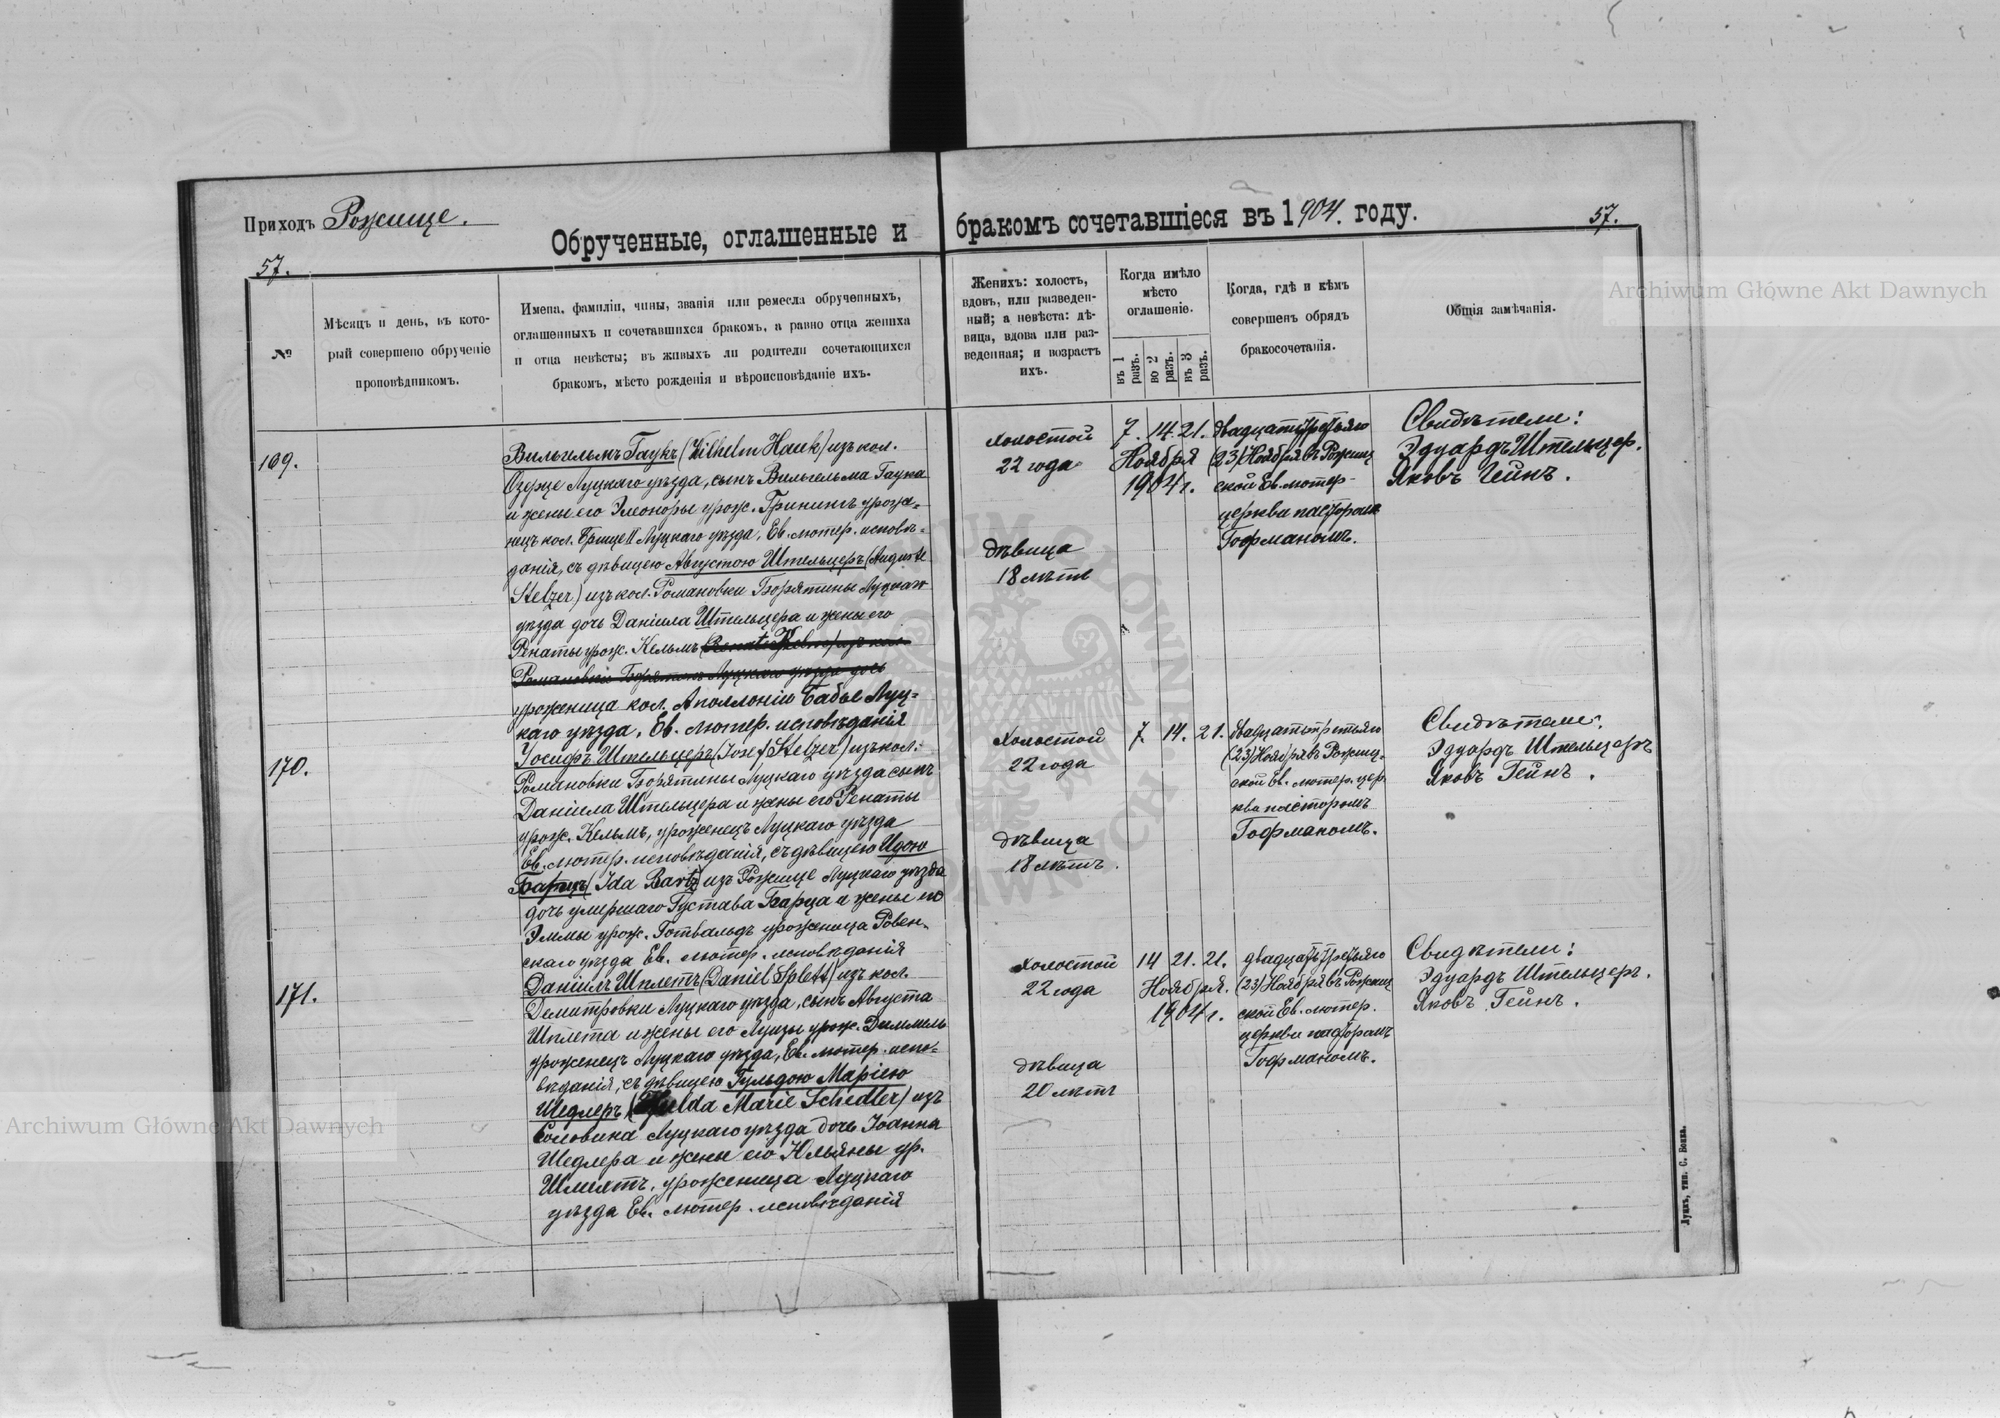 Приходъ Рожище.
Обрученные, оглашенные и бракомъ сочетавшіеся въ 1904. году.
57.
57.
№
Мѣсяцъ и день, въ кото-
рый совершено обрученіе
проповѣдникомъ.
Имена, фамиліи, чины, званія или ремесла обрученныхъ,
оглашенныхъ и сочетавшихся бракомъ, а равно отца жениха
и отца невѣсты; въ живыхъ ли родители сочетающихся
бракомъ, мѣсто рожденія и вѣроисповѣданіе ихъ.
Женихъ: холостъ,
вдовъ, или разведен-
ный; а невѣста: дѣ-
вица, вдова или раз-
веденная; и возрастъ
ихъ.
Когда имѣло
мѣсто
оглашеніе.
въ 1 разъ.
во 2 разъ.
въ 3 разъ.
Когда, гдѣ и кѣмъ
совершенъ обрядъ
бракосочетанія.
Общія замѣчанія.
169.
Вильгельмъ Гаукъ (Wilhelm Hauk) изъ кол.
Озерце Луцкаго уѣзда, сынъ Вильгельма Гаука
и жены его Элеоноры урож. Грининъ урож-
нецъ кол. II Луцкаго уѣзда, Ев. лютер. исповѣ-
данія, съ дѣвицею Августою Штельцеръ (Auguste
Stelzer) изъ кол. Романовки Борятины Луцкаго
уѣзда дочь Даніила Штельцера и жены его
Ренаты урож. Кельмъ
уроженица кол. Аполлоніи Бабье Луц-
каго уѣзда, Ев. лютер. исповѣданія
холостой
22 года
дѣвица
18 лѣтъ
7. 14. 21.
Ноября
1904 г.
двадцатьтретьяго
(23) Ноября въ Рожищ
ской Ев. лютер-
церкви пасторомъ
Гофманомъ.
Свидѣтели:
Эдуардъ Штельцер.
Яковъ Гейнъ.
170.
Іосифъ Штельцеръ (Josef Stelzer) изъ кол.
Романовки Борятины Луцкаго уѣзда сынъ
Даніила Штельцера и жены его Ренаты
урож. Кельмъ, уроженецъ Луцкаго уѣзда
Ев. лютер. исповѣданія, съ дѣвицею Идою
Барцъ (Ida Bartz) изъ Рожище Луцкаго уѣзда
дочь умершаго Густава Барца и жены его
Эммы урож. Готвальдъ уроженица Ровен-
скаго уѣзда Ев. лютер. исповѣданія
холостой
22 года
дѣвица
18 лѣтъ.
7. 14. 21.
двадцатьтретьяго
(23) Ноября въ Рожищ-
ской Ев. лютер. цер-
кви пасторомъ
Гофманомъ.
Свидѣтели:
Эдуардъ Штельцеръ
Яковъ Гейнъ.
171.
Даніилъ Шплетъ (Daniel Splett) изъ кол.
Димитровки Луцкаго уѣзда, сынъ Августа
Шплета и жены его Луизы урож. Диммель
уроженецъ Луцкаго уѣзда, Ев. лютер. испо-
вѣданія, съ дѣвицею Гульдою Маріею
Шедлеръ (Hulda Marie Schedler) изъ
Соловина Луцкаго уѣзда дочь Іоанна
Шедлера и жены его Юльяны ур.
Шмидтъ, уроженица Луцкаго
уѣзда Ев. лютер. исповѣданія
холостой
22 года
дѣвица
20 лѣтъ
14 21. 21.
Ноября.
1904 г.
двадцатьтретьяго
(23) Ноября въ Рожищ
ской Ев. лютер.
церкви пасторомъ
Гофманомъ.
Свидѣтели:
Эдуардъ Штельцеръ.
Яковъ Гейнъ.
Archiwum Główne Akt Dawnych
Archiwum Główne Akt Dawnych